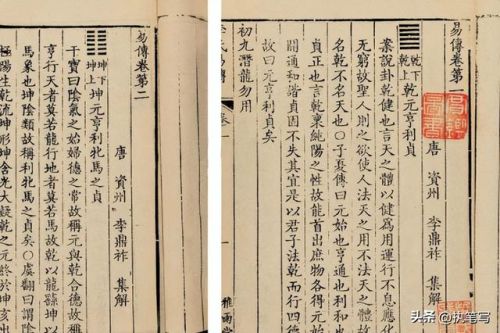 易傳卷第一
唐 資州 李鼎祚 集解
乾下
乾上 乾元亨利貞
案說卦乾健也言天之體以健為用運行不息應化
無窮故聖人則之欲使人法天之用不法天之體故
名乾不名天也○子夏傳曰元始也亨通也利和也
貞正也言乾稟純陽之性故能首出庶物各得元
開通和諧貞固不失其宜是以君子法乾而行四德
故曰元亨利貞矣
初九潛龍勿用
氏易傳
卷一
雅雨堂
易傳卷第二
唐 資州 李鼎祚 集解
坤下
坤上 坤元亨利牝馬之貞
干寶曰陰氣之始婦德之常故稱元與乾合德故稱
亨行天者莫若龍行地者莫若馬故乾以龍繇坤以
馬象也坤陰類故稱利牝馬之貞矣○虞翻曰謂陰
極陽生乾流坤形坤含光大凝乾之元終於坤亥出
头条 @执笔写